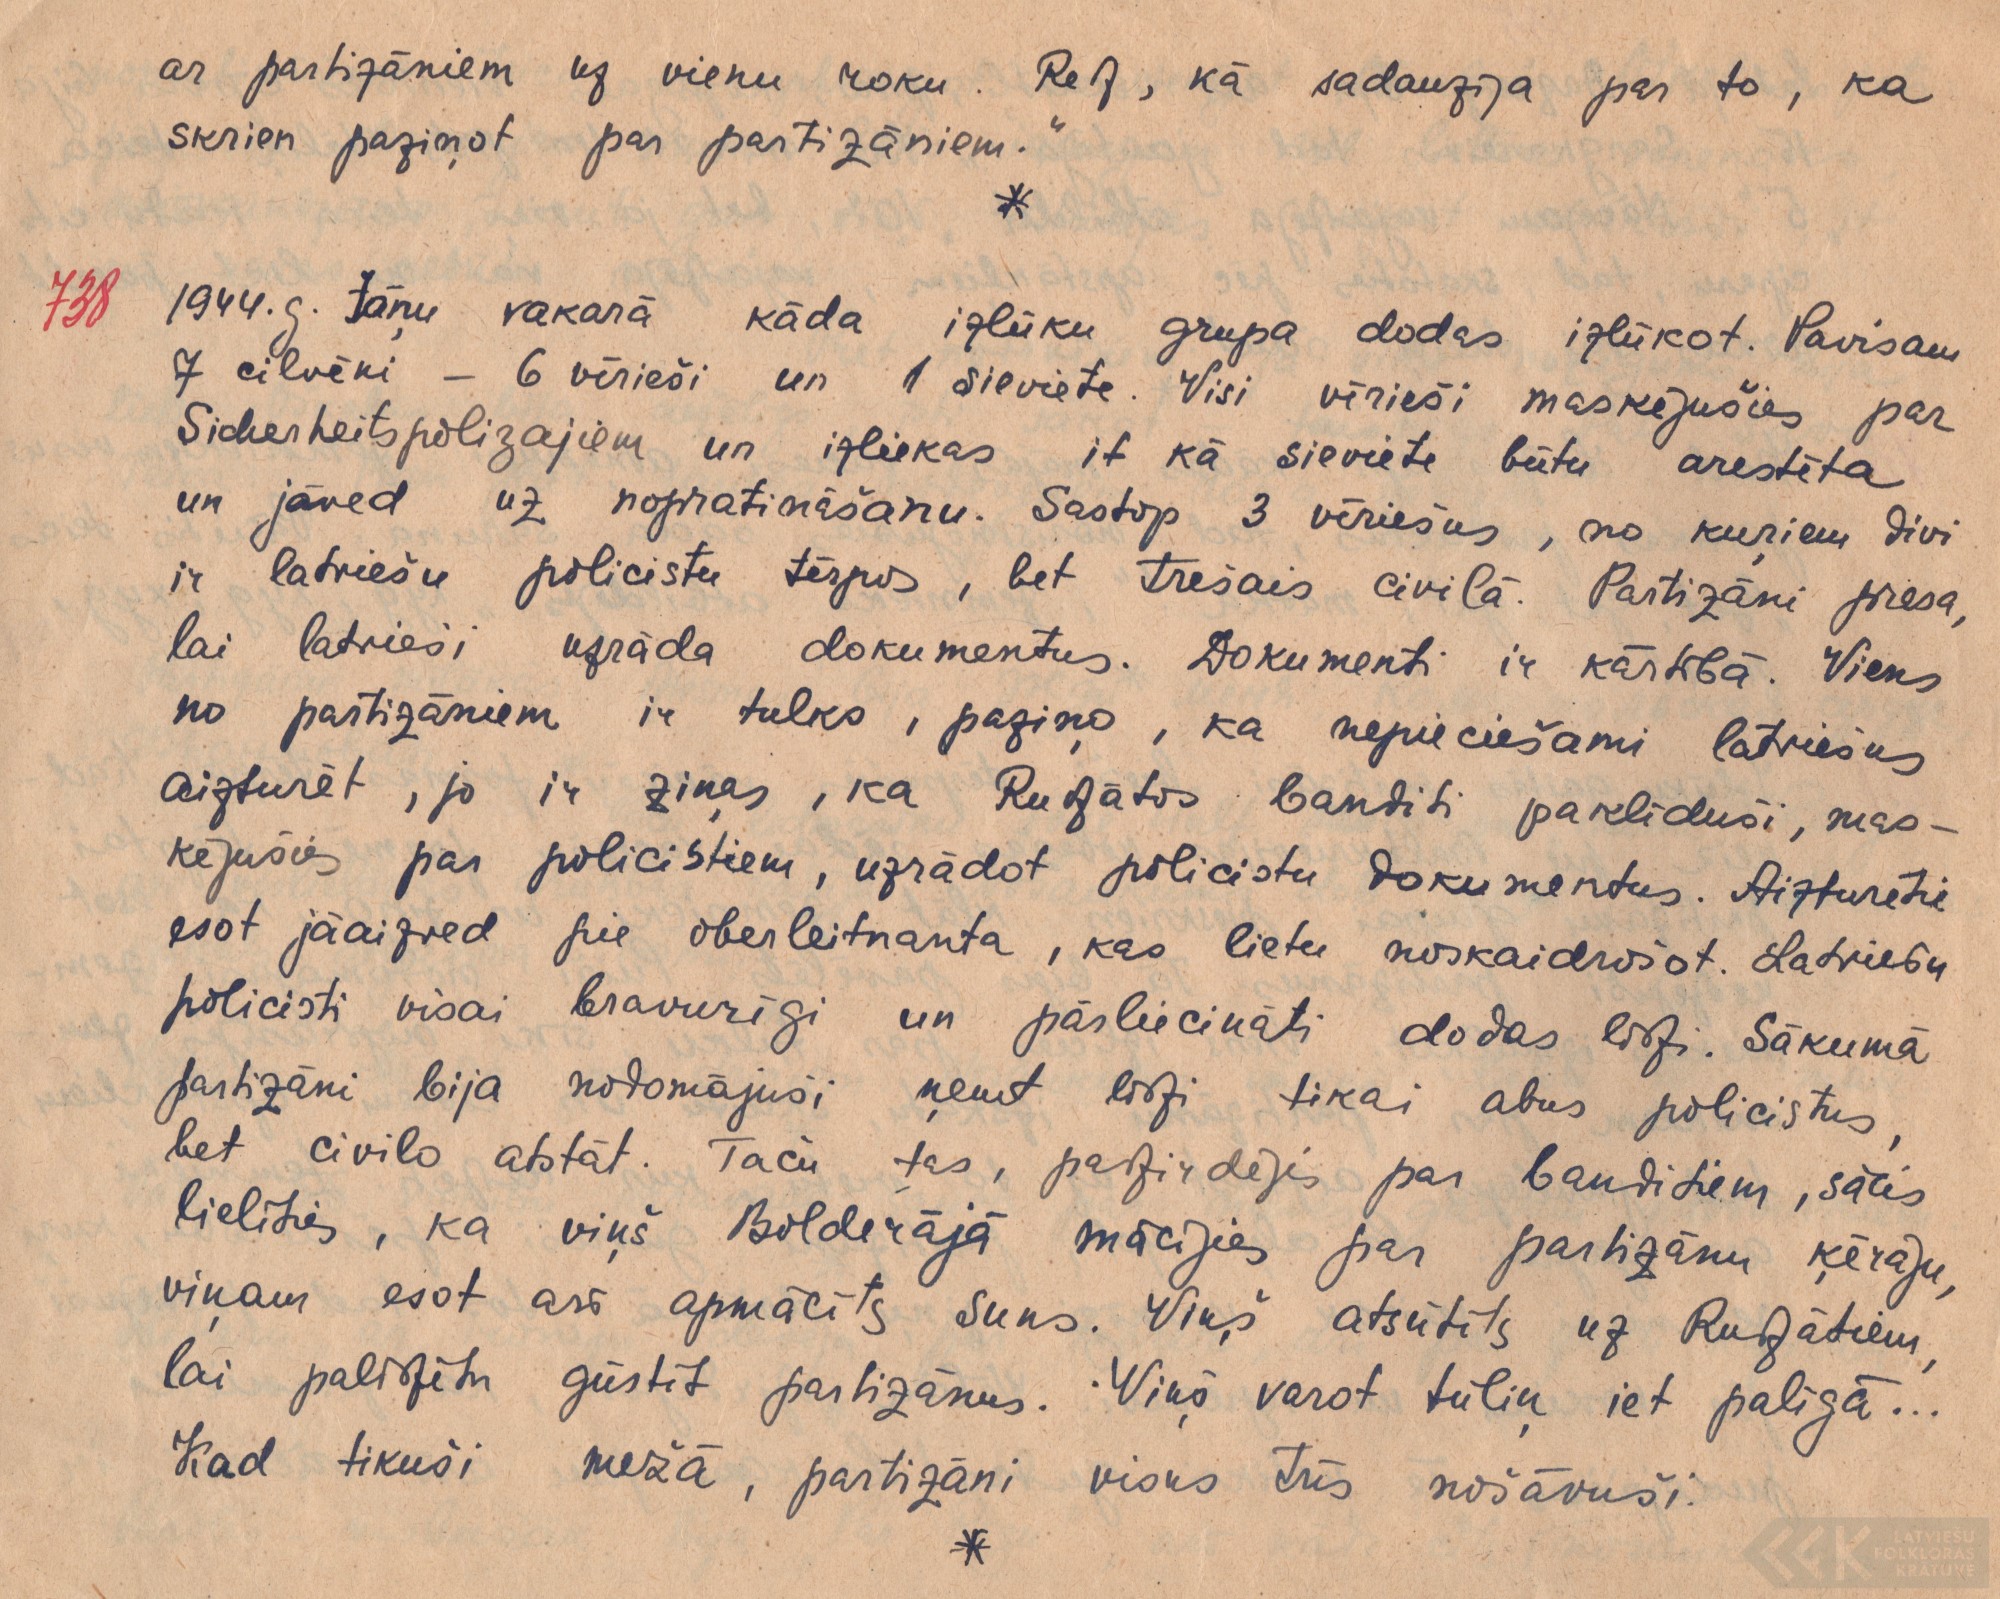 ar partizāniem uz vienu roku. Redz, kā sadauzīja par to, ka
skrien paziņot par partizāniem."
*
738 1944.g. Jāņu vakarā kāda izlūku grupa dodas izlūkot. Pavisam
7 cilvēki – 6 vīrieši un 1 sieviete. Visi vīrieši maskējušies par
Sicherheitspolizajiem un izliekas it kā sieviete būtu arestēta
un jāved uz nopratināšanu. Sastop 3 vīriešus, no kuŗiem divi
ir latviešu policistu tērpos, bet trešais civilā. Partizāni prasa,
lai latvieši uzrāda dokumentus. Dokumenti ir kārtībā. Viens
no partizāniem ir tulks, paziņo, ka nepieciešami latviešus
aizturēt, jo ir ziņas, ka Rudzātos banditi paklīduši, mas-
kējušies par policistiem, uzrādot policistu dokumentus. Aizturētie
esot jāaizved pie oberleitnanta, kas lietu noskaidrošot. Latviešu
policisti visai bravurīgi un pārliecināti dodas līdzi. Sākumā
partizāni bija nodomājuši ņemt līdzi tikai abus policistus,
bet civilo atstāt. Taču tas, padzirdējis par banditiem, sācis
lielīties, ka viņš Bolderājā mācījies par partizānu ķērāju,
viņam esot arī apmācīts suns. Viņš atsūtīts uz Rudzātiem,
lai palīdzētu gūstīt partizānus. Viņš varot tūliņ iet palīgā...
Kad tikuši mežā, partizāni visus trīs nošāvuši.
*
LATVIEŠU
FOLKLORAS
KRĀTUVE